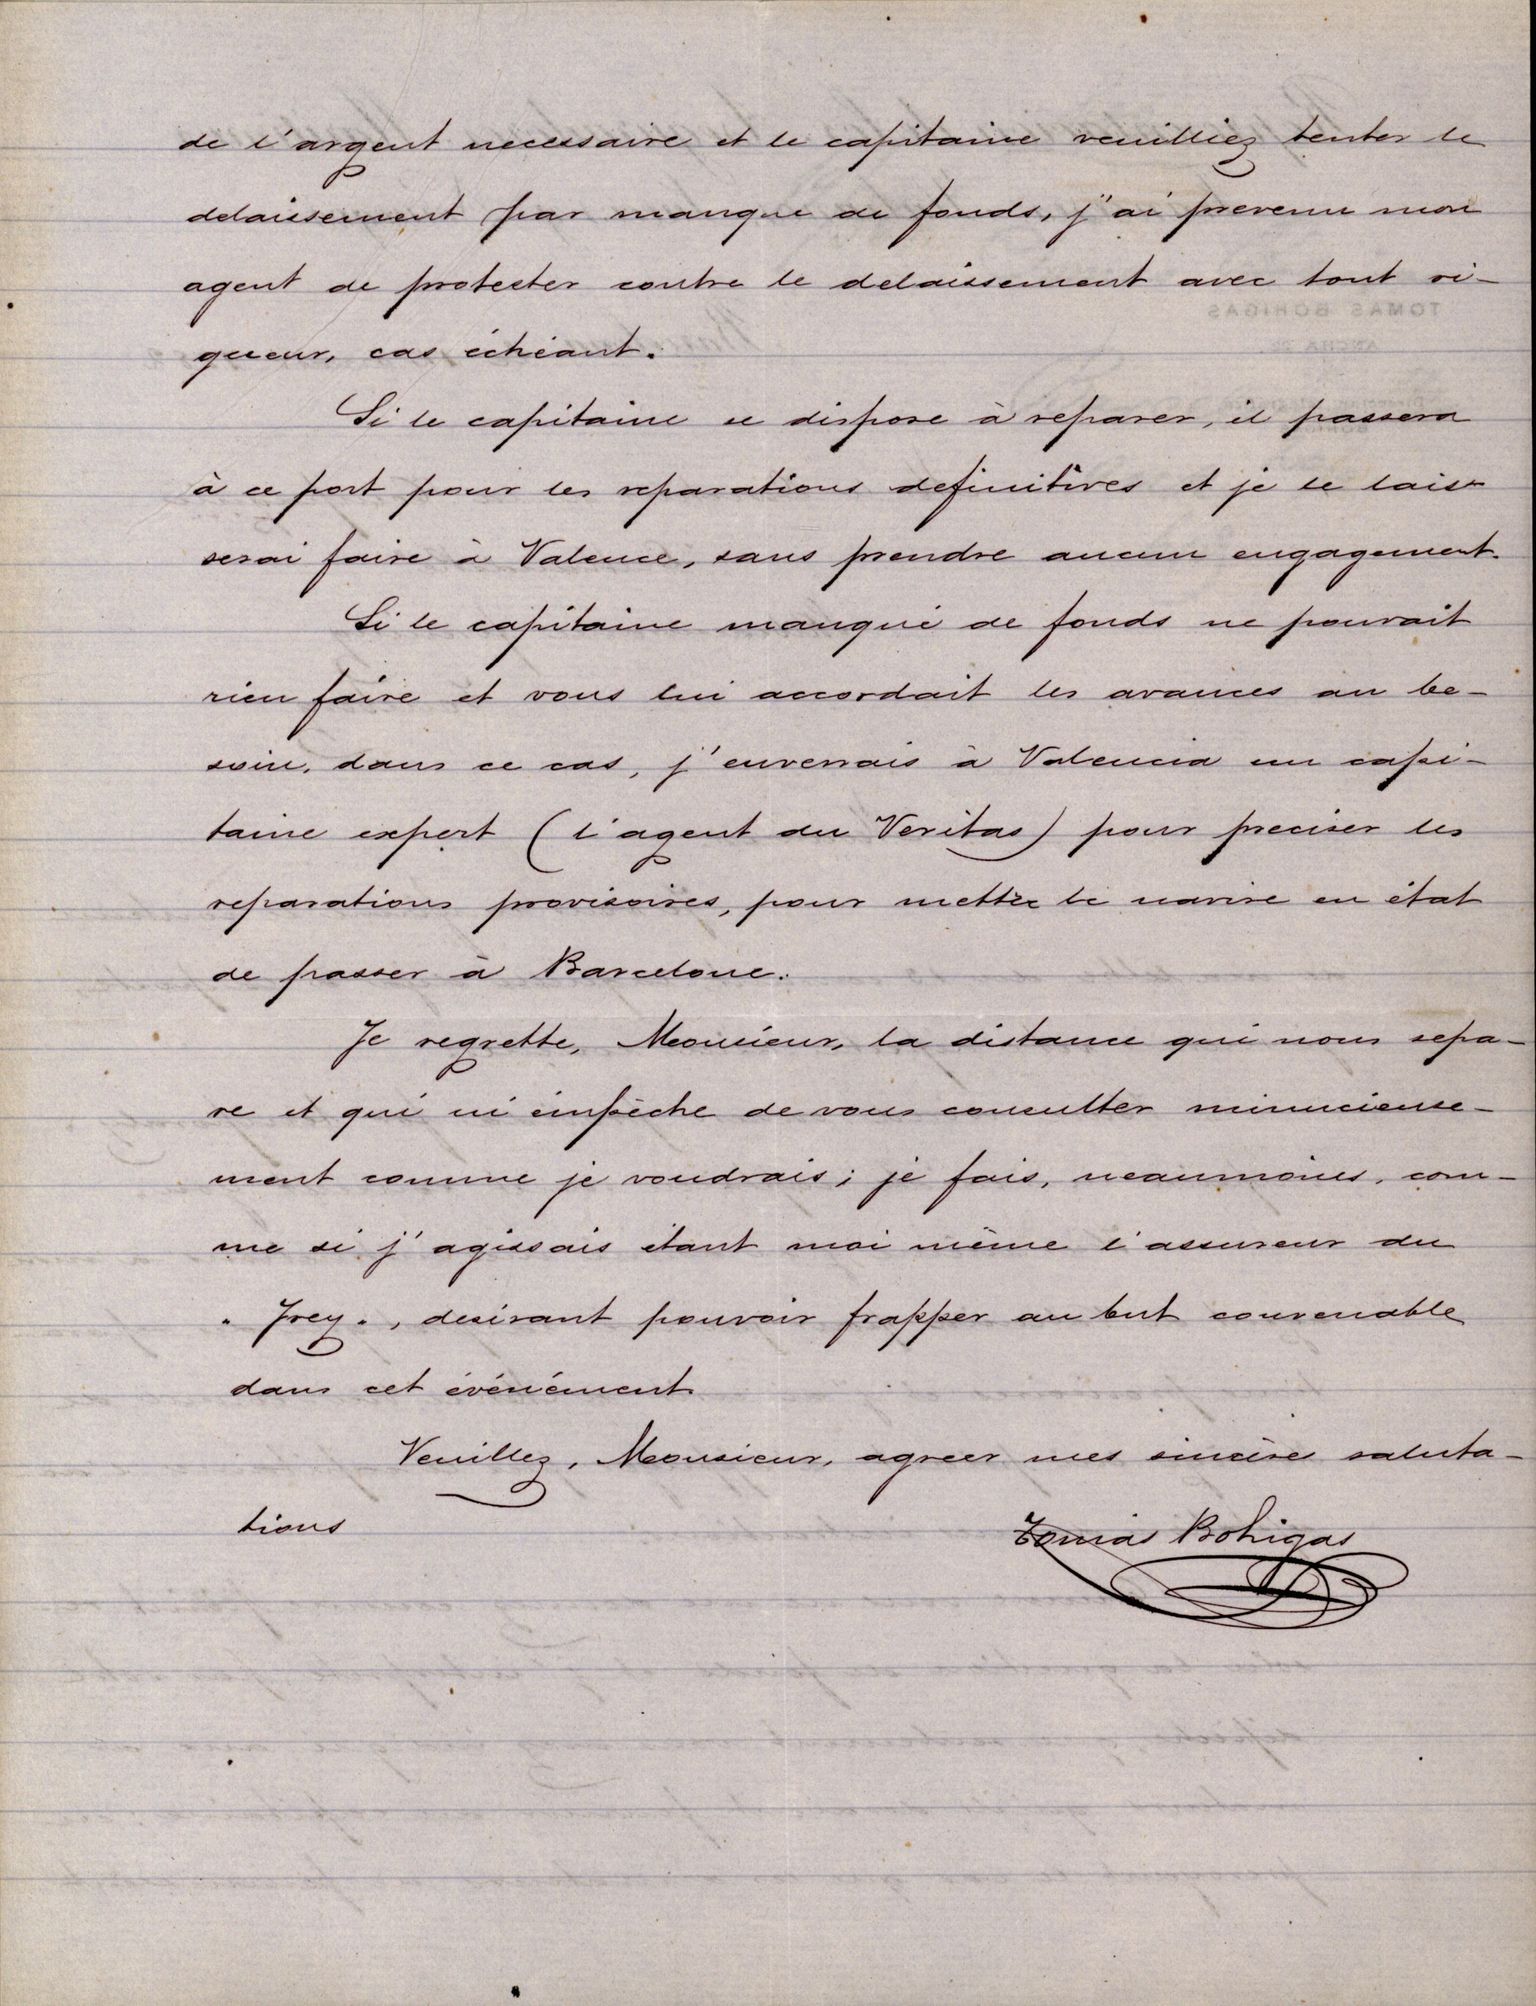 de l'argent necessaire et le capitaine veuilliez tenter le
delaissement par manque de fonds, j'ai prevenu mon
agent de protester contre le delaissement avec tout ri-
gueur, cas échéant.
Si le capitaine se dispose à reparer, il passera
à ce port pour les reparations definitives et je le lais-
serai faire à Valence, sans prendre aucun engagement.
Si le capitaine manqué de fonds ne pouvait
rien faire et vous lui accordait les avances au be-
soin, dans ce cas, j'enverrais à Valencia un capi-
taine expert (l'agent du Veritas) pour preciser les
reparations provisoires, pour mettre le navire en état
de passer à Barcelone.
Je regrette, Monsieur, la distance qui nous sepa-
re et qui m'émpèche de vous consulter minucieuse-
ment comme je voudrais; je fais, neaumoins, com-
me si j'agissais étant moi même l'assureur du
"Frey", desirant pouvoir frapper au but convenable
dans cet événément.
Veuillez, Monsieur, agreer mes sincère saluta-
tions
Tomás Bohigas
TOMAS BOHIGAS